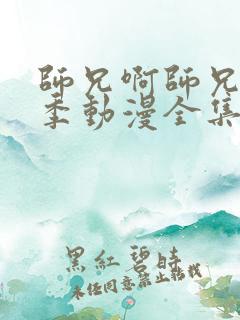 師兄啊師兄
季動漫全集
黑紅碧時
未經同意禁止轉載